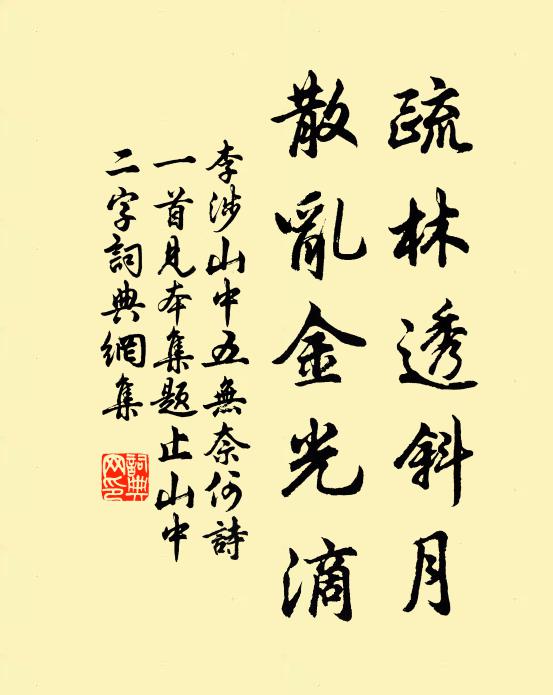 疏林透斜月
散亂金光滴
李涉山中五無奈何詩
一首見本集題止山中
二字詞典網集
詞典網印